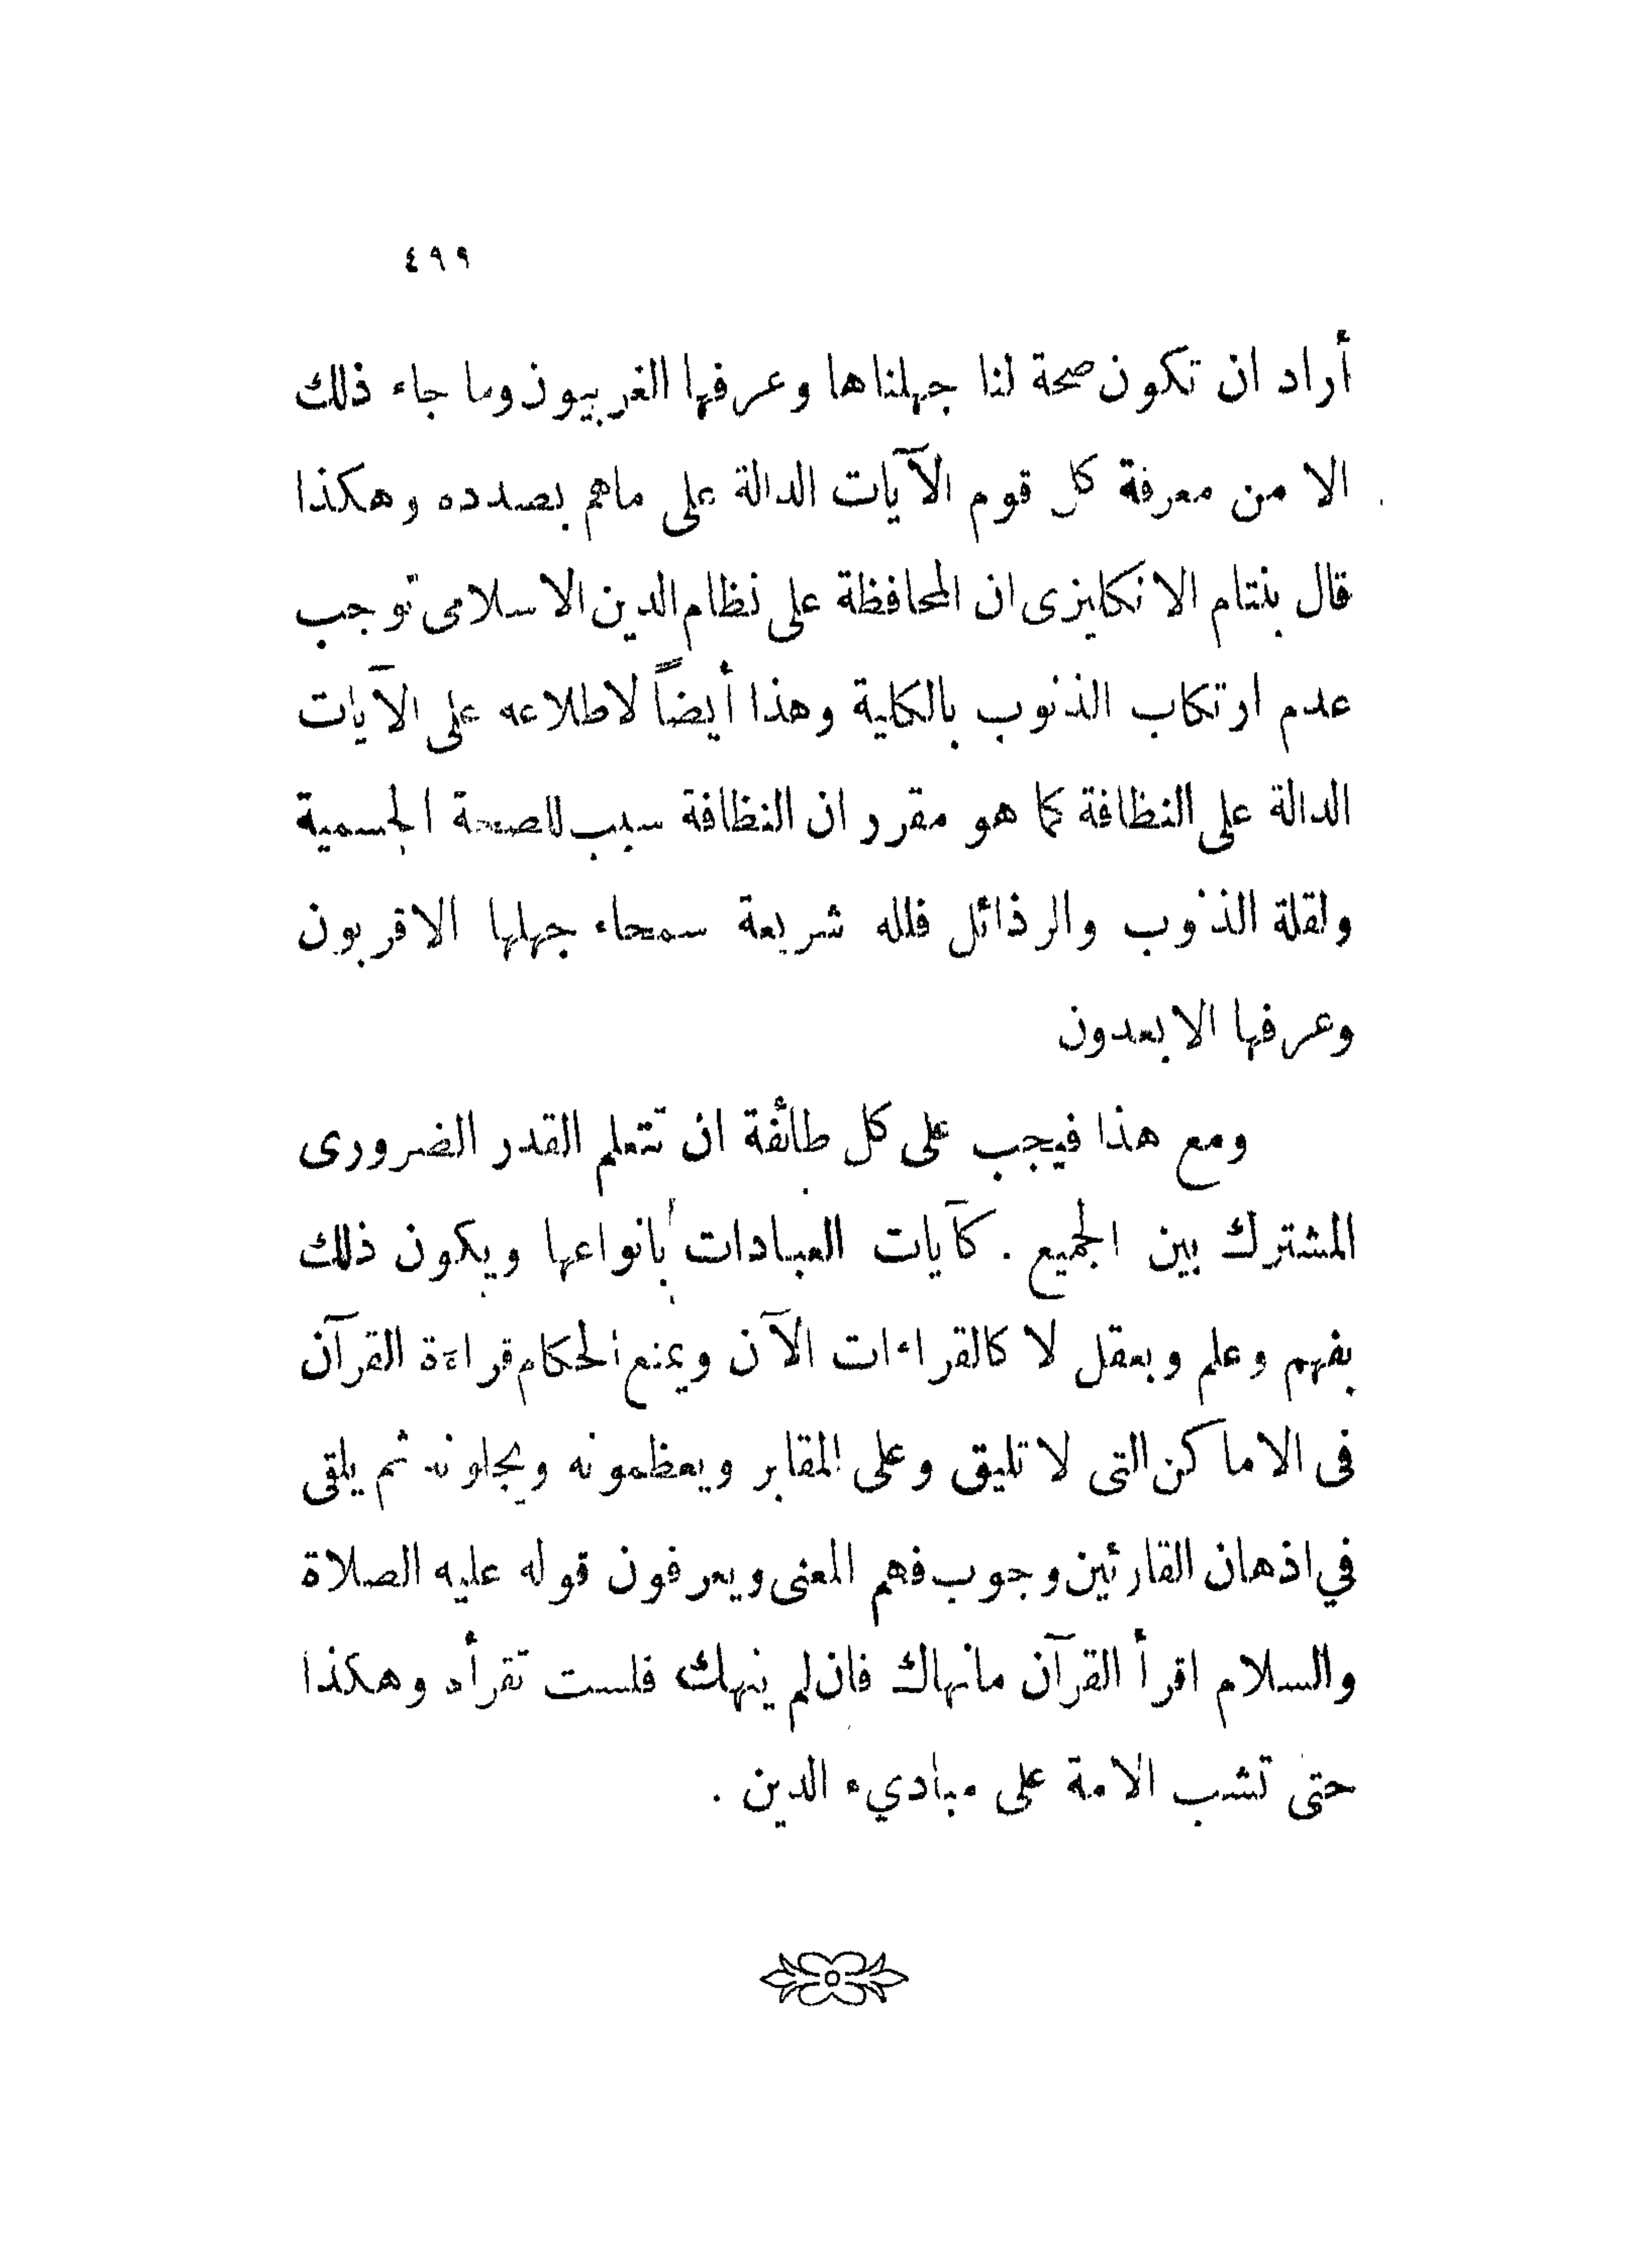 ٤٩٩
أراد ان تكون صحة لنا جهلناها وعرفها الغربيون وما جاء ذلك
الا من معرفة كل قوم الآيات الدالة على ماهم بصدده وهكذا
قال بنتام الانكليزى ان المحافظة على نظام الدين الاسلامى توجب
عدم ارتكاب الذنوب بالكلية وهذا أيضاً لاطلاعه على الآيات
الدالة على النظافة كما هو مقرر ان النظافة سبب للصحة الجسمية
ولقلة الذنوب والرذائل فلله شريعة سمحاء جهلها الاقربون
وعرفها الابعدون
ومع هذا فيجب على كل طائفة ان تتعلم القدر الضرورى
المشترك بين الجميع . كآيات العبادات بانواعها ويكون ذلك
بفهم وعلم وبعقل لا كالقراءات الآن ويمنع الحكام قراءة القرآن
فى الاماكن التى لا تليق وعلى المقابر ويعظمونه ويجلونه ثم يلقى
في اذهان القارئين وجوب فهم المعنى ويعرفون قوله عليه الصلاة
والسلام اقرأ القرآن مانهاك فان لم ينهك فلست تقرأه وهكذا
حتى تشب الامة على مباديء الدين .